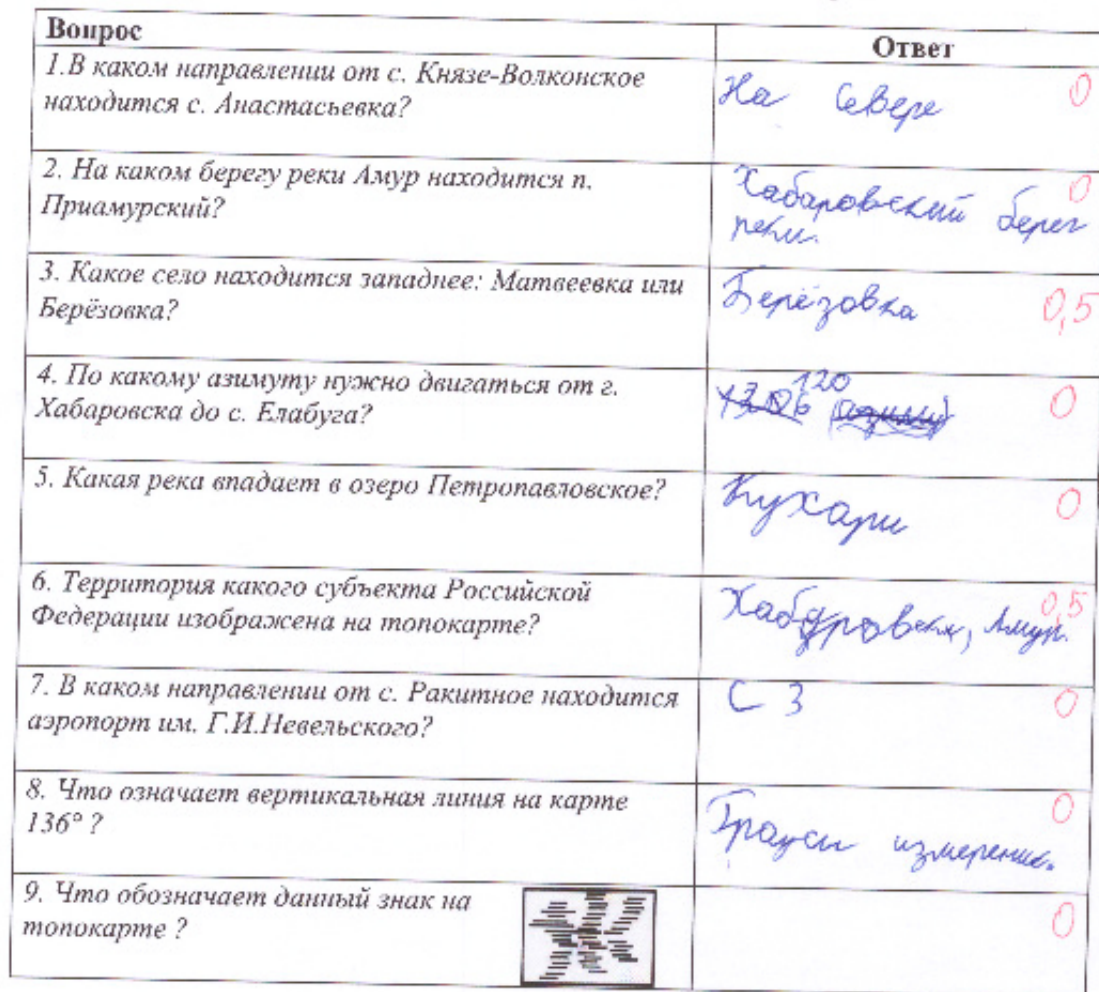 Вопрос
Ответ
1.В каком направлении от с. Князе-Волконское
находится с. Анастасьевка?
На Севере
0
2. На каком берегу реки Амур находится п.
Приамурский?
Хабаровский берег
реки.
0
3. Какое село находится западнее: Матвеевка или
Берёзовка?
Берёзовка
0,5
4. По какому азимуту нужно двигаться от г.
Хабаровска до с. Елабуга?
120
0
5. Какая река впадает в озеро Петропавловское?
Кухари
0
6. Территория какого субъекта Российской
Федерации изображена на топокарте?
Амур.
0,5
7. В каком направлении от с. Ракитное находится
аэропорт им. Г.И.Невельского?
С З
0
8. Что означает вертикальная линия на карте
136° ?
0
9. Что обозначает данный знак на
топокарте ?
0